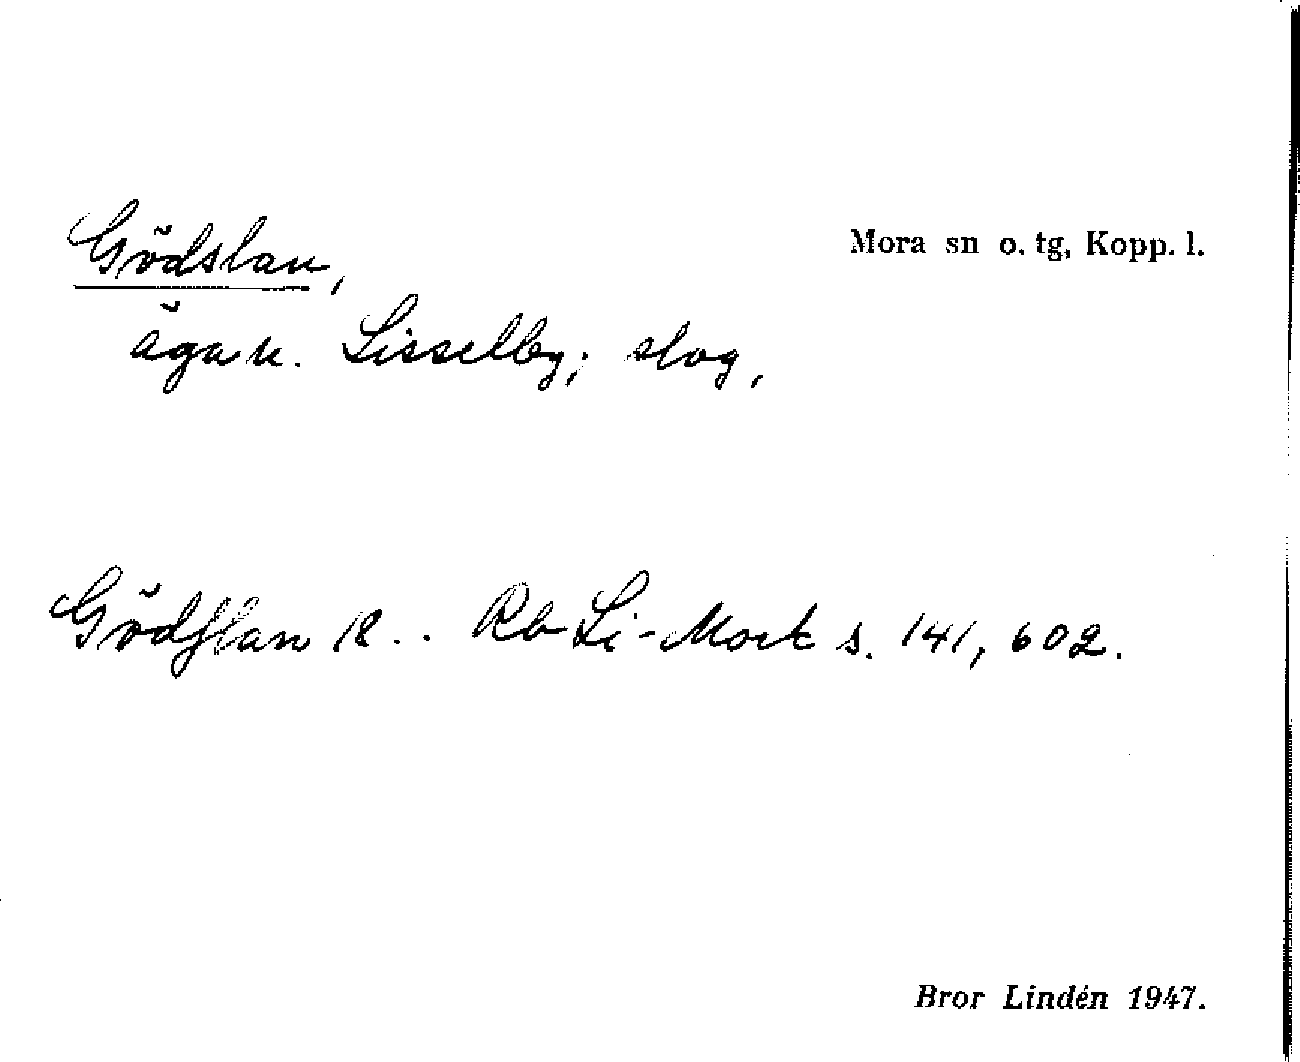 Gödslan,
Mora sn o. tg, Kopp. l.
ägan. Lisselby; slog,
Gödſlan R.. Rb Li-Mork s. 141, 602.
Bror Lindén 1947.